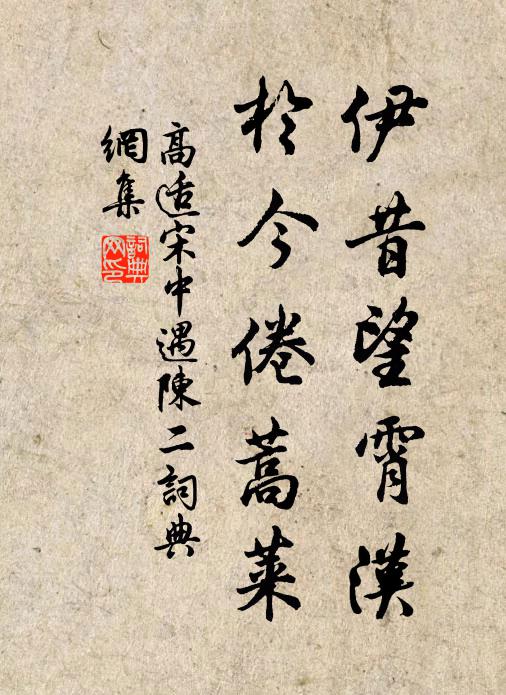 伊昔望霄漢
於今倦蒿萊
高适宋中遇陳二詞典
網集
詞典網印